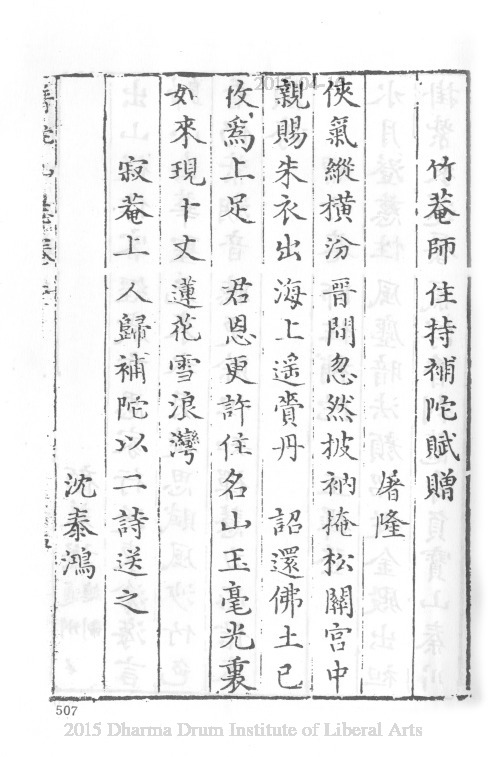 竹菴師住持補陀賦贈
屠隆
俠氣縱橫汾晉間忽然披衲掩松關宮中
親賜朱衣出海上遥賫丹　詔還佛土已
收爲上足　君恩更許住名山玉毫光裏
如來現十丈蓮花雪浪灣
寂菴上人歸補陀以二詩送之
沈泰鴻
507
2015 Dharma Drum Institute of Liberal Arts